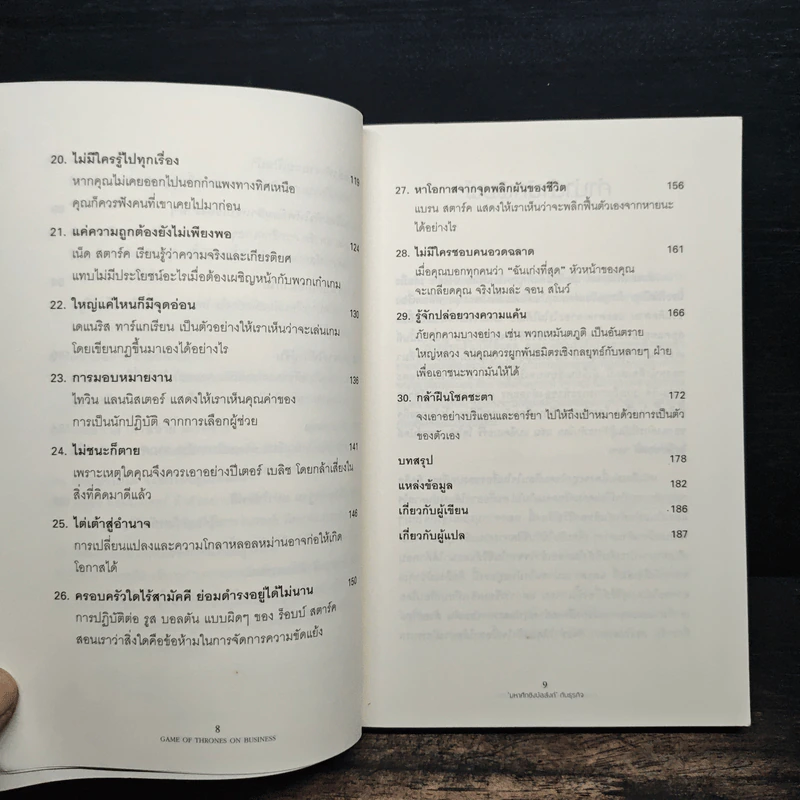 20. ไม่มีใครรู้ไปทุกเรื่อง 119
หากคุณไม่เคยออกไปนอกกำแพงทางทิศเหนือ
คุณก็ควรฟังคนที่เขาเคยไปมาก่อน
21. แค่ความถูกต้องยังไม่เพียงพอ 124
เน็ด สตาร์ค เรียนรู้ว่าความจริงและเกียรติยศ
แทบไม่มีประโยชน์อะไรเมื่อต้องเผชิญหน้ากับพวกเก๋าเกม
22. ใหญ่แค่ไหนก็มีจุดอ่อน 130
เดแนริส ทาร์แกเรียน เป็นตัวอย่างให้เราเห็นว่าจะเล่นเกม
โดยเขียนกฎขึ้นมาเองได้อย่างไร
23. การมอบหมายงาน 136
ไทวิน แลนนิสเตอร์ แสดงให้เราเห็นคุณค่าของ
การเป็นนักปฏิบัติ จากการเลือกผู้ช่วย
24. ไม่ชนะก็ตาย 141
เพราะเหตุใดคุณจึงควรเอาอย่างปีเตอร์ เบลิช โดยกล้าเสี่ยงใน
สิ่งที่คิดมาดีแล้ว
25. ไต่เต้าสู่อำนาจ 146
การเปลี่ยนแปลงและความโกลาหลอลหม่านอาจก่อให้เกิด
โอกาสได้
26. ครอบครัวใดไร้สามัคคี ย่อมดำรงอยู่ได้ไม่นาน 150
การปฏิบัติต่อ รูส บอลตัน แบบผิดๆ ของ ร็อบบ์ สตาร์ค
สอนเราว่าสิ่งใดคือข้อห้ามในการจัดการความขัดแย้ง
8
GAME OF THRONES ON BUSINESS
27. หาโอกาสจากจุดพลิกผันของชีวิต 156
แบรน สตาร์ค แสดงให้เราเห็นว่าจะพลิกฟื้นตัวเองจากหายนะ
ได้อย่างไร
28. ไม่มีใครชอบคนอวดฉลาด 161
เมื่อคุณบอกทุกคนว่า “ฉันเก่งที่สุด” หัวหน้าของคุณ
จะเกลียดคุณ จริงไหมล่ะ จอน สโนว์
29. รู้จักปล่อยวางความแค้น 166
ภัยคุกคามบางอย่าง เช่น พวกเหมันตภูติ เป็นอันตราย
ใหญ่หลวง จนคุณควรผูกพันธมิตรเชิงกลยุทธ์กับหลายๆ ฝ่าย
เพื่อเอาชนะพวกมันให้ได้
30. กล้าฝืนโชคชะตา 172
จงเอาอย่างบริแอนและอาร์ยา ไปให้ถึงเป้าหมายด้วยการเป็นตัว
ของตัวเอง
บทสรุป 178
แหล่งข้อมูล 182
เกี่ยวกับผู้เขียน 186
เกี่ยวกับผู้แปล 187
9
'มหาศึกชิงบัลลังก์' กับธุรกิจ